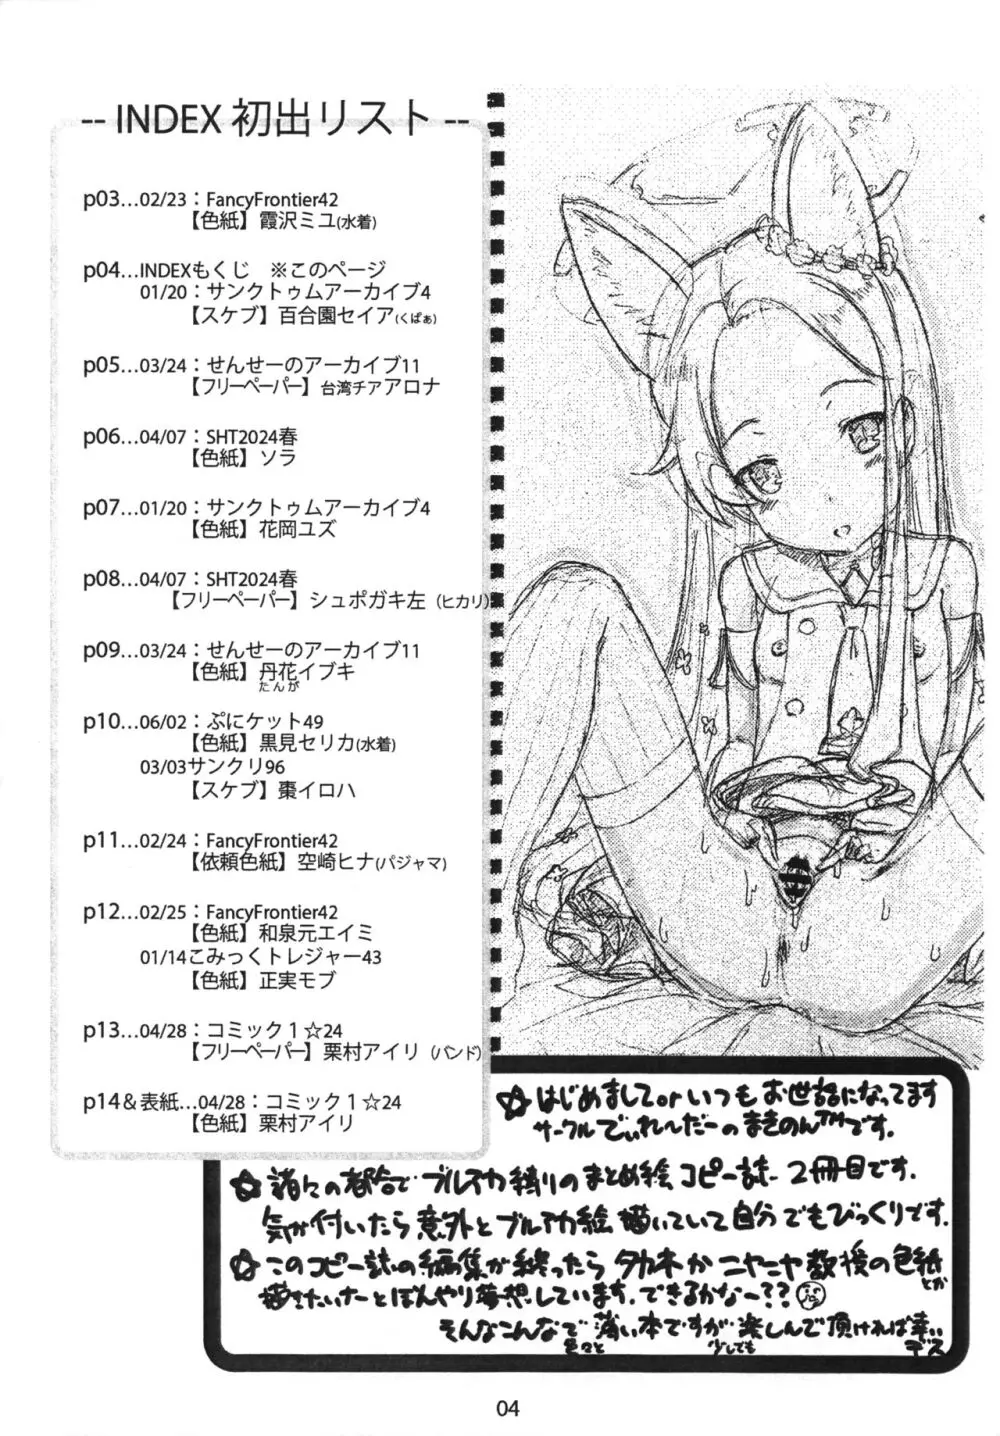 -- INDEX 初出リスト --
p03…02/23：FancyFrontier42
【色紙】霞沢ミユ(水着)
p04…INDEXもくじ　※このページ
01/20：サンクトゥムアーカイブ4
【スケブ】百合園セイア(くぱぁ)
p05…03/24：せんせーのアーカイブ11
【フリーペーパー】台湾チアアロナ
p06…04/07：SHT2024春
【色紙】ソラ
p07…01/20：サンクトゥムアーカイブ4
【色紙】花岡ユズ
p08…04/07：SHT2024春
【フリーペーパー】シュポガキ左（ヒカリ）
p09…03/24：せんせーのアーカイブ11
【色紙】丹花イブキ
たんが
p10…06/02：ぷにケット49
【色紙】黒見セリカ(水着)
03/03サンクリ96
【スケブ】棗イロハ
p11…02/24：FancyFrontier42
【依頼色紙】空崎ヒナ(パジャマ)
p12…02/25：FancyFrontier42
【色紙】和泉元エイミ
01/14こみっくトレジャー43
【色紙】正実モブ
p13…04/28：コミック1☆24
【フリーペーパー】栗村アイリ（バンド）
p14＆表紙…04/28：コミック1☆24
【色紙】栗村アイリ
☆はじめましてorいつもお世話になってます
サークルでぃれ〜だーのまきのん™です。
☆諸々の都合でブルアカ縛りのまとめ絵コピー誌2冊目です。
気が付いたら意外とブルアカ絵描いていて自分でもびっくりです。
☆このコピー誌の編集が終ったらタカネかニヤニヤ教授の色紙とか
描きたいなーとぼんやり夢想しています。できるかなー??
そんなこんなで薄い本ですが楽しんで頂ければ幸いデス
色々と 少しでも
04